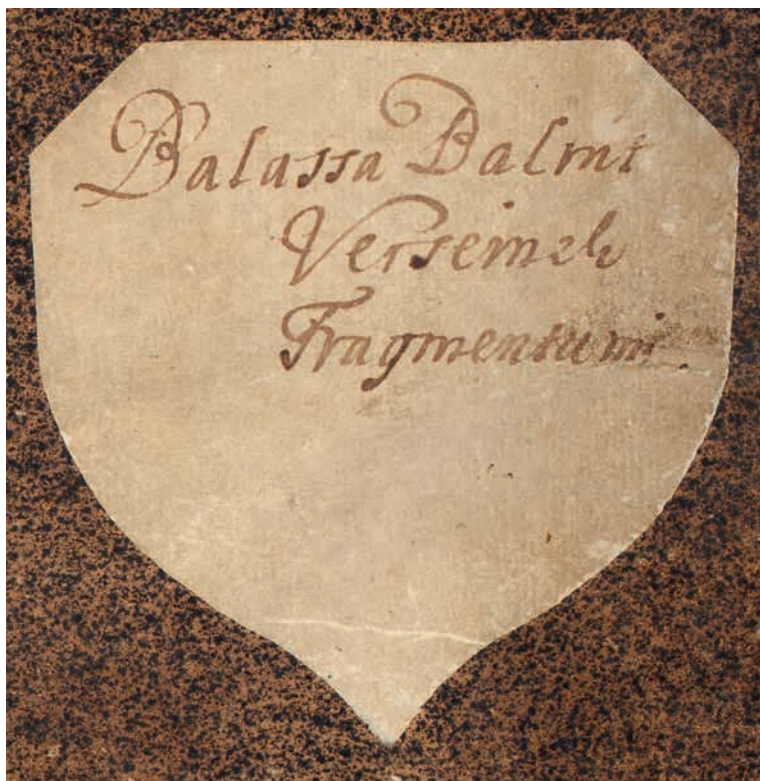 Balassa Balint
Verseinek
Fragmentumi.